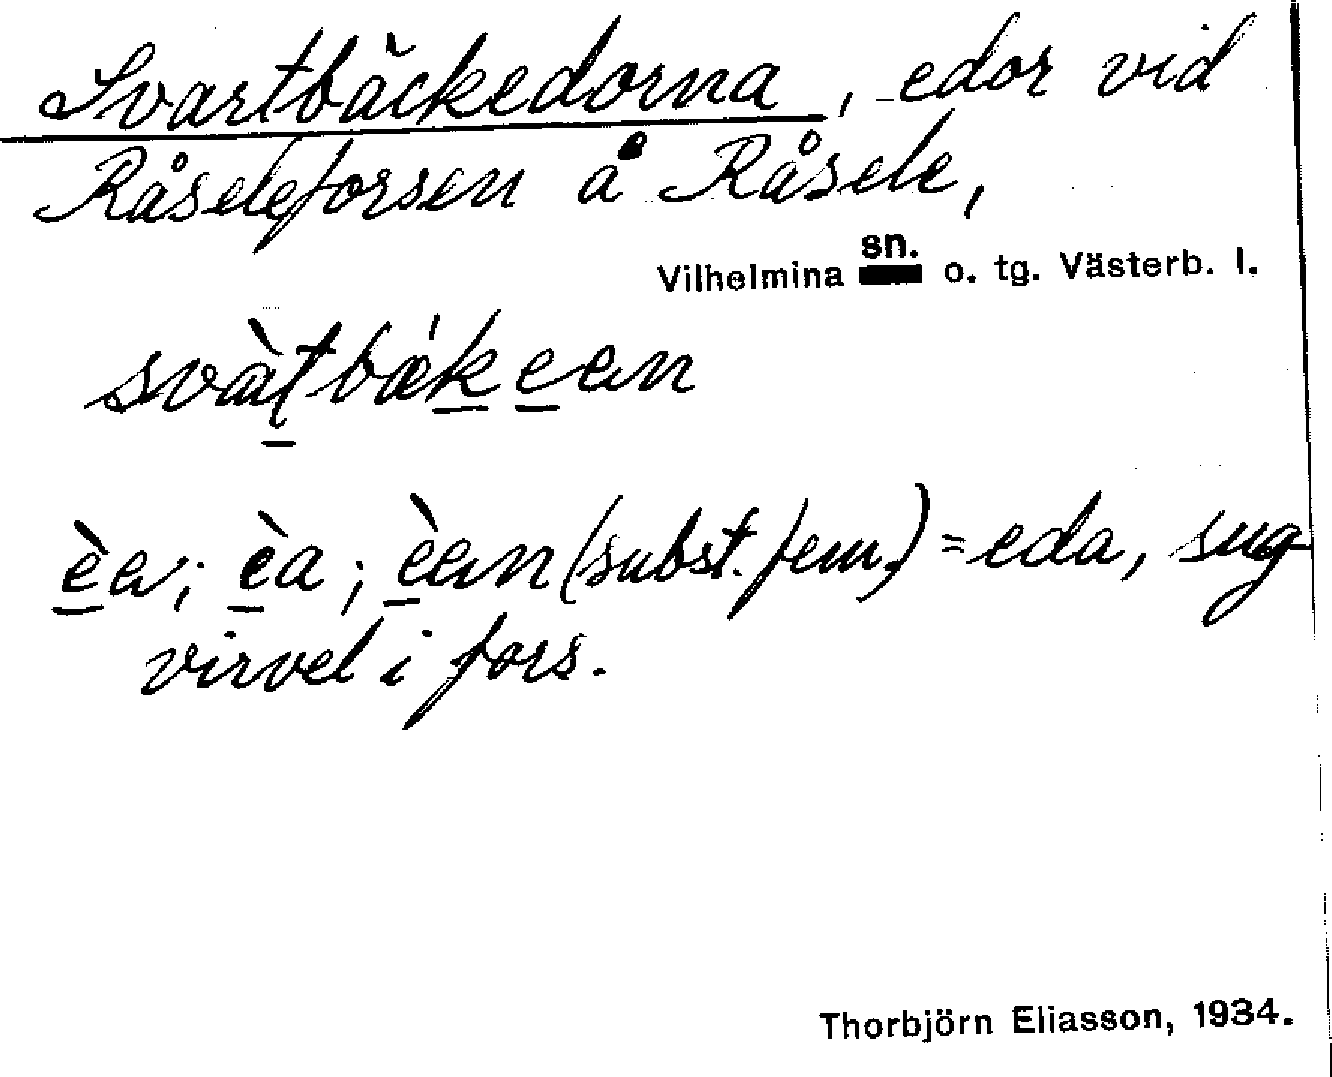 Svartbäckedorna, edor vid
Råseleforsen å Råsele,
Vilhelmina sn. o. tg. Västerb. l.
svàtbǽkeen
èa; èa; èen (subst. fem.) = eda, sug
virvel i fors.
Thorbjörn Eliasson, 1934.